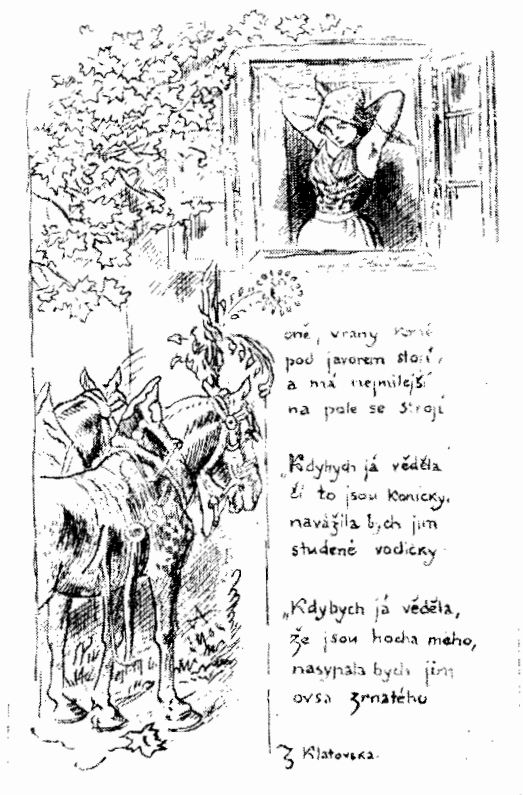 Koně, vrany koně
pod javorem stojí,
a má nejmilejší
na pole se strojí
„Kdybych já věděla
čí to jsou konicky,
navážila bych jim
studené vodičky
„Kdybych já věděla,
že jsou hocha mého,
nasypala bych jim
ovsa zrnatého
Z Klatovska.